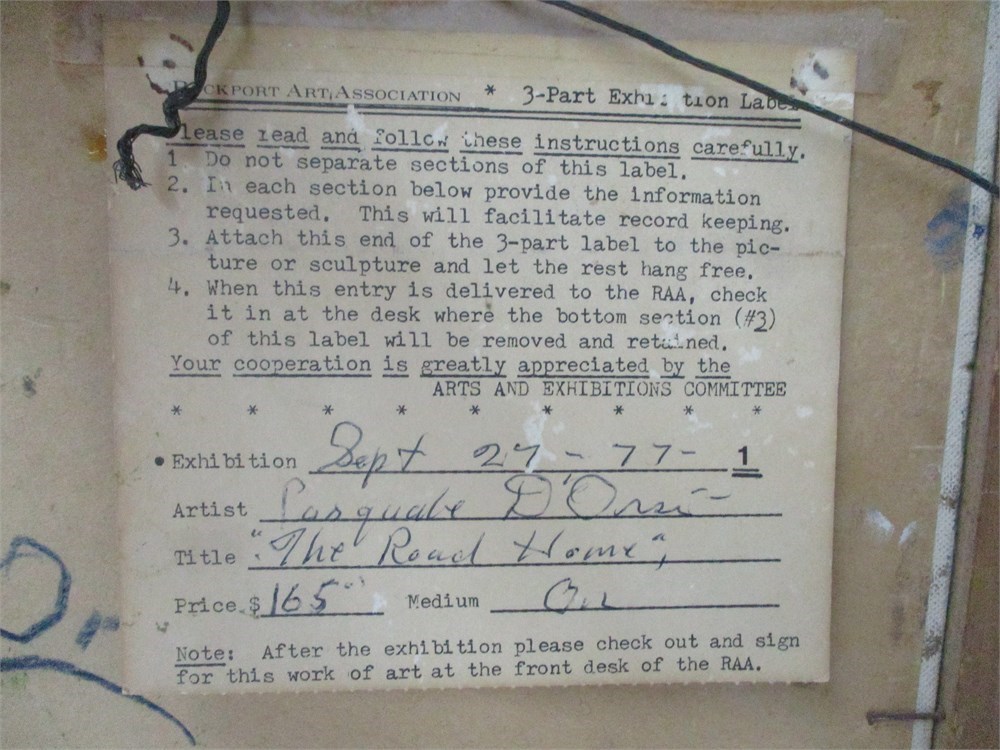 ROCKPORT ART ASSOCIATION * 3-Part Exhibition Label
Please read and follow these instructions carefully.
1 Do not separate sections of this label.
2. In each section below provide the information
requested. This will facilitate record keeping.
3. Attach this end of the 3-part label to the pic-
ture or sculpture and let the rest hang free.
4. When this entry is delivered to the RAA, check
it in at the desk where the bottom section (#3)
of this label will be removed and retained.
Your cooperation is greatly appreciated by the
ARTS AND EXHIBITIONS COMMITTEE
* * * * * * * * *
• Exhibition Sept 27-77- 1
Artist Pasquale D'Orsi
Title "The Road Home"
Price $165 Medium Oil
Note: After the exhibition please check out and sign
for this work of art at the front desk of the RAA.